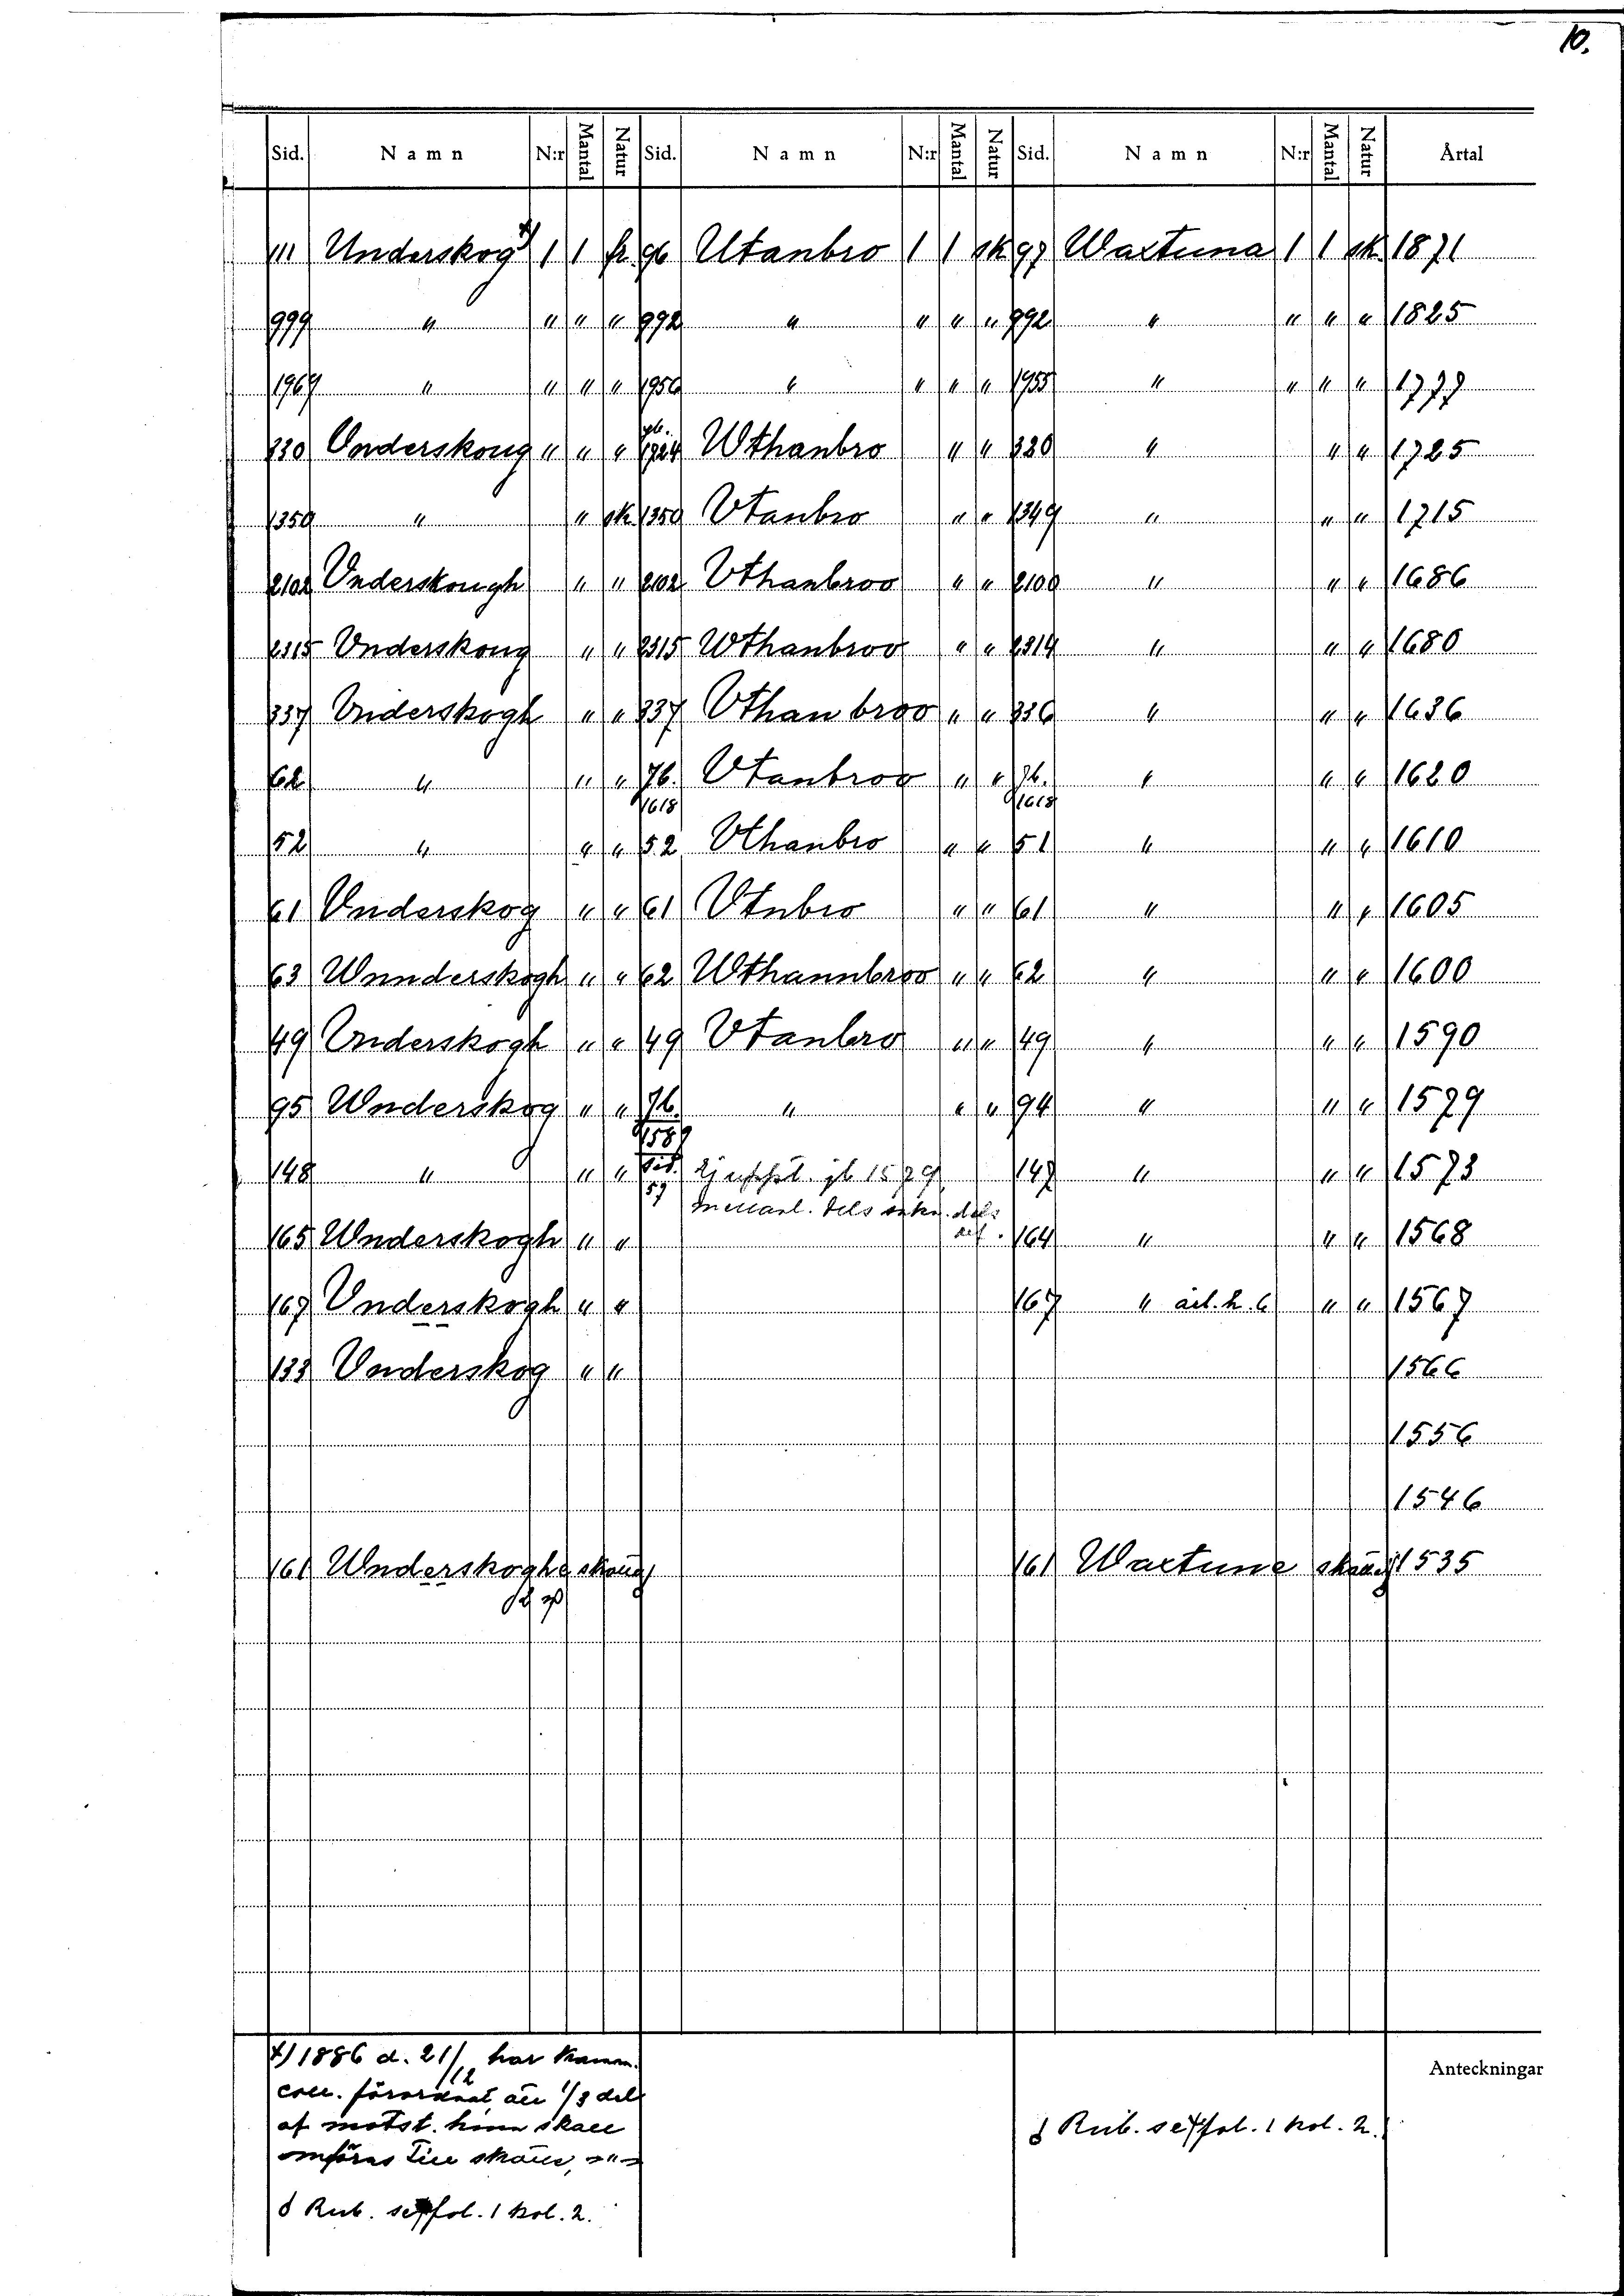 10.
Sid. Namn N:r Mantal Natur Sid. Namn N:r Mantal Natur Sid. Namn N:r Mantal Natur Årtal
111 Underskog x) 1 1 fr. 96 Utanbro 1 1 sk 97 Waxtuna 1 1 sk. 1871
999 " " " " 992 " " " " 992 " " " " 1825
1969 " " " " 1956 " " " " 1955 " " " " 1777
330 Onderskoug " " " jb. 1724 Wthanbro " " 320 " " " 1725
1350 " " sk 1350 Vtanbro " " 1349 " " " 1715
2102 Vnderskough " " 2102 Vthanbroo " " 2100 " " " 1686
2315 Vnderskoug " " 2315 Wthanbroo " " 2314 " " " 1680
337 Vnderskogh " " 337 Vthanbroo " " 336 " " " 1636
62 " " " jb. 1618 Vtanbroo " " jb. 1618 " " " 1620
52 " " " 52 Vthanbro " " 51 " " " 1610
61 Vnderskog " " 61 Vtnbro " " 61 " " " 1605
63 Wnnderskogh " " 62 Wthannbroo " " 62 " " " 1600
49 Vnderskogh " " 49 Vtanbro " " 49 " " " 1590
95 Wnderskog " " jb. 1589 " " " 94 " " " 1579
148 " " " sid. 57 Ej uppt. jb 1579 147 " " " 1573
mellanl. dels sakn. dels
165 Wnderskogh " " def. 164 " " " 1568
167 Vnderskogh " " 167 " årl. h. b " " 1567
133 Vnderskog " " 1566
1556
1546
161 Wnderskoghe skattej 161 Waxtune skattej 1535
x) 1886 d. 21/12 har Kamm.
coll. förordnat att 1/3 del
af motst. hem skall
omföras till skatte, -"-
♂ Rub. se fol. 1 kol. 2.
Anteckningar
♂ Rub. se fol. 1 kol. 2.